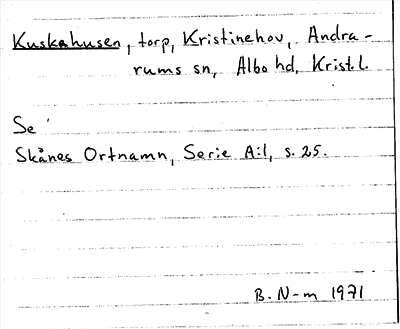 Kuskahusen, torp, Kristinehov, Andra-
rums sn, Albo hd, Krist. l.
Se
Skånes Ortnamn, Serie A:1, s. 25.
B. N-m 1971